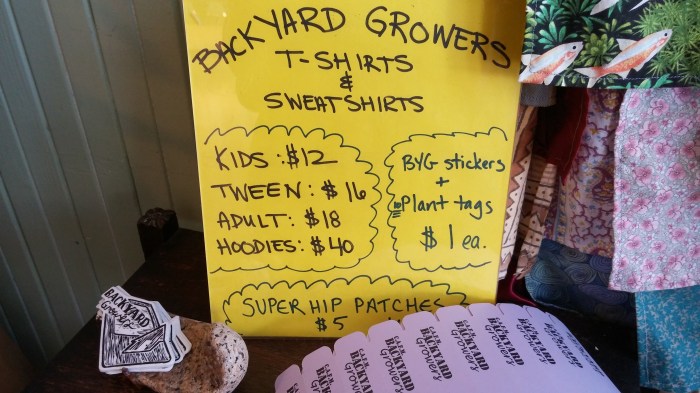 BACKYARD GROWERS
T-SHIRTS
&
SWEATSHIRTS
KIDS: $12
TWEEN: $16
ADULT: $18
HOODIES: $40
BYG stickers
+
Plant tags
$1 ea.
SUPER HIP PATCHES
$5
BACKYARD
Growers
BACKYARD
Growers
BACKYARD
Growers
BACKYARD
Growers
BACKYARD
Growers